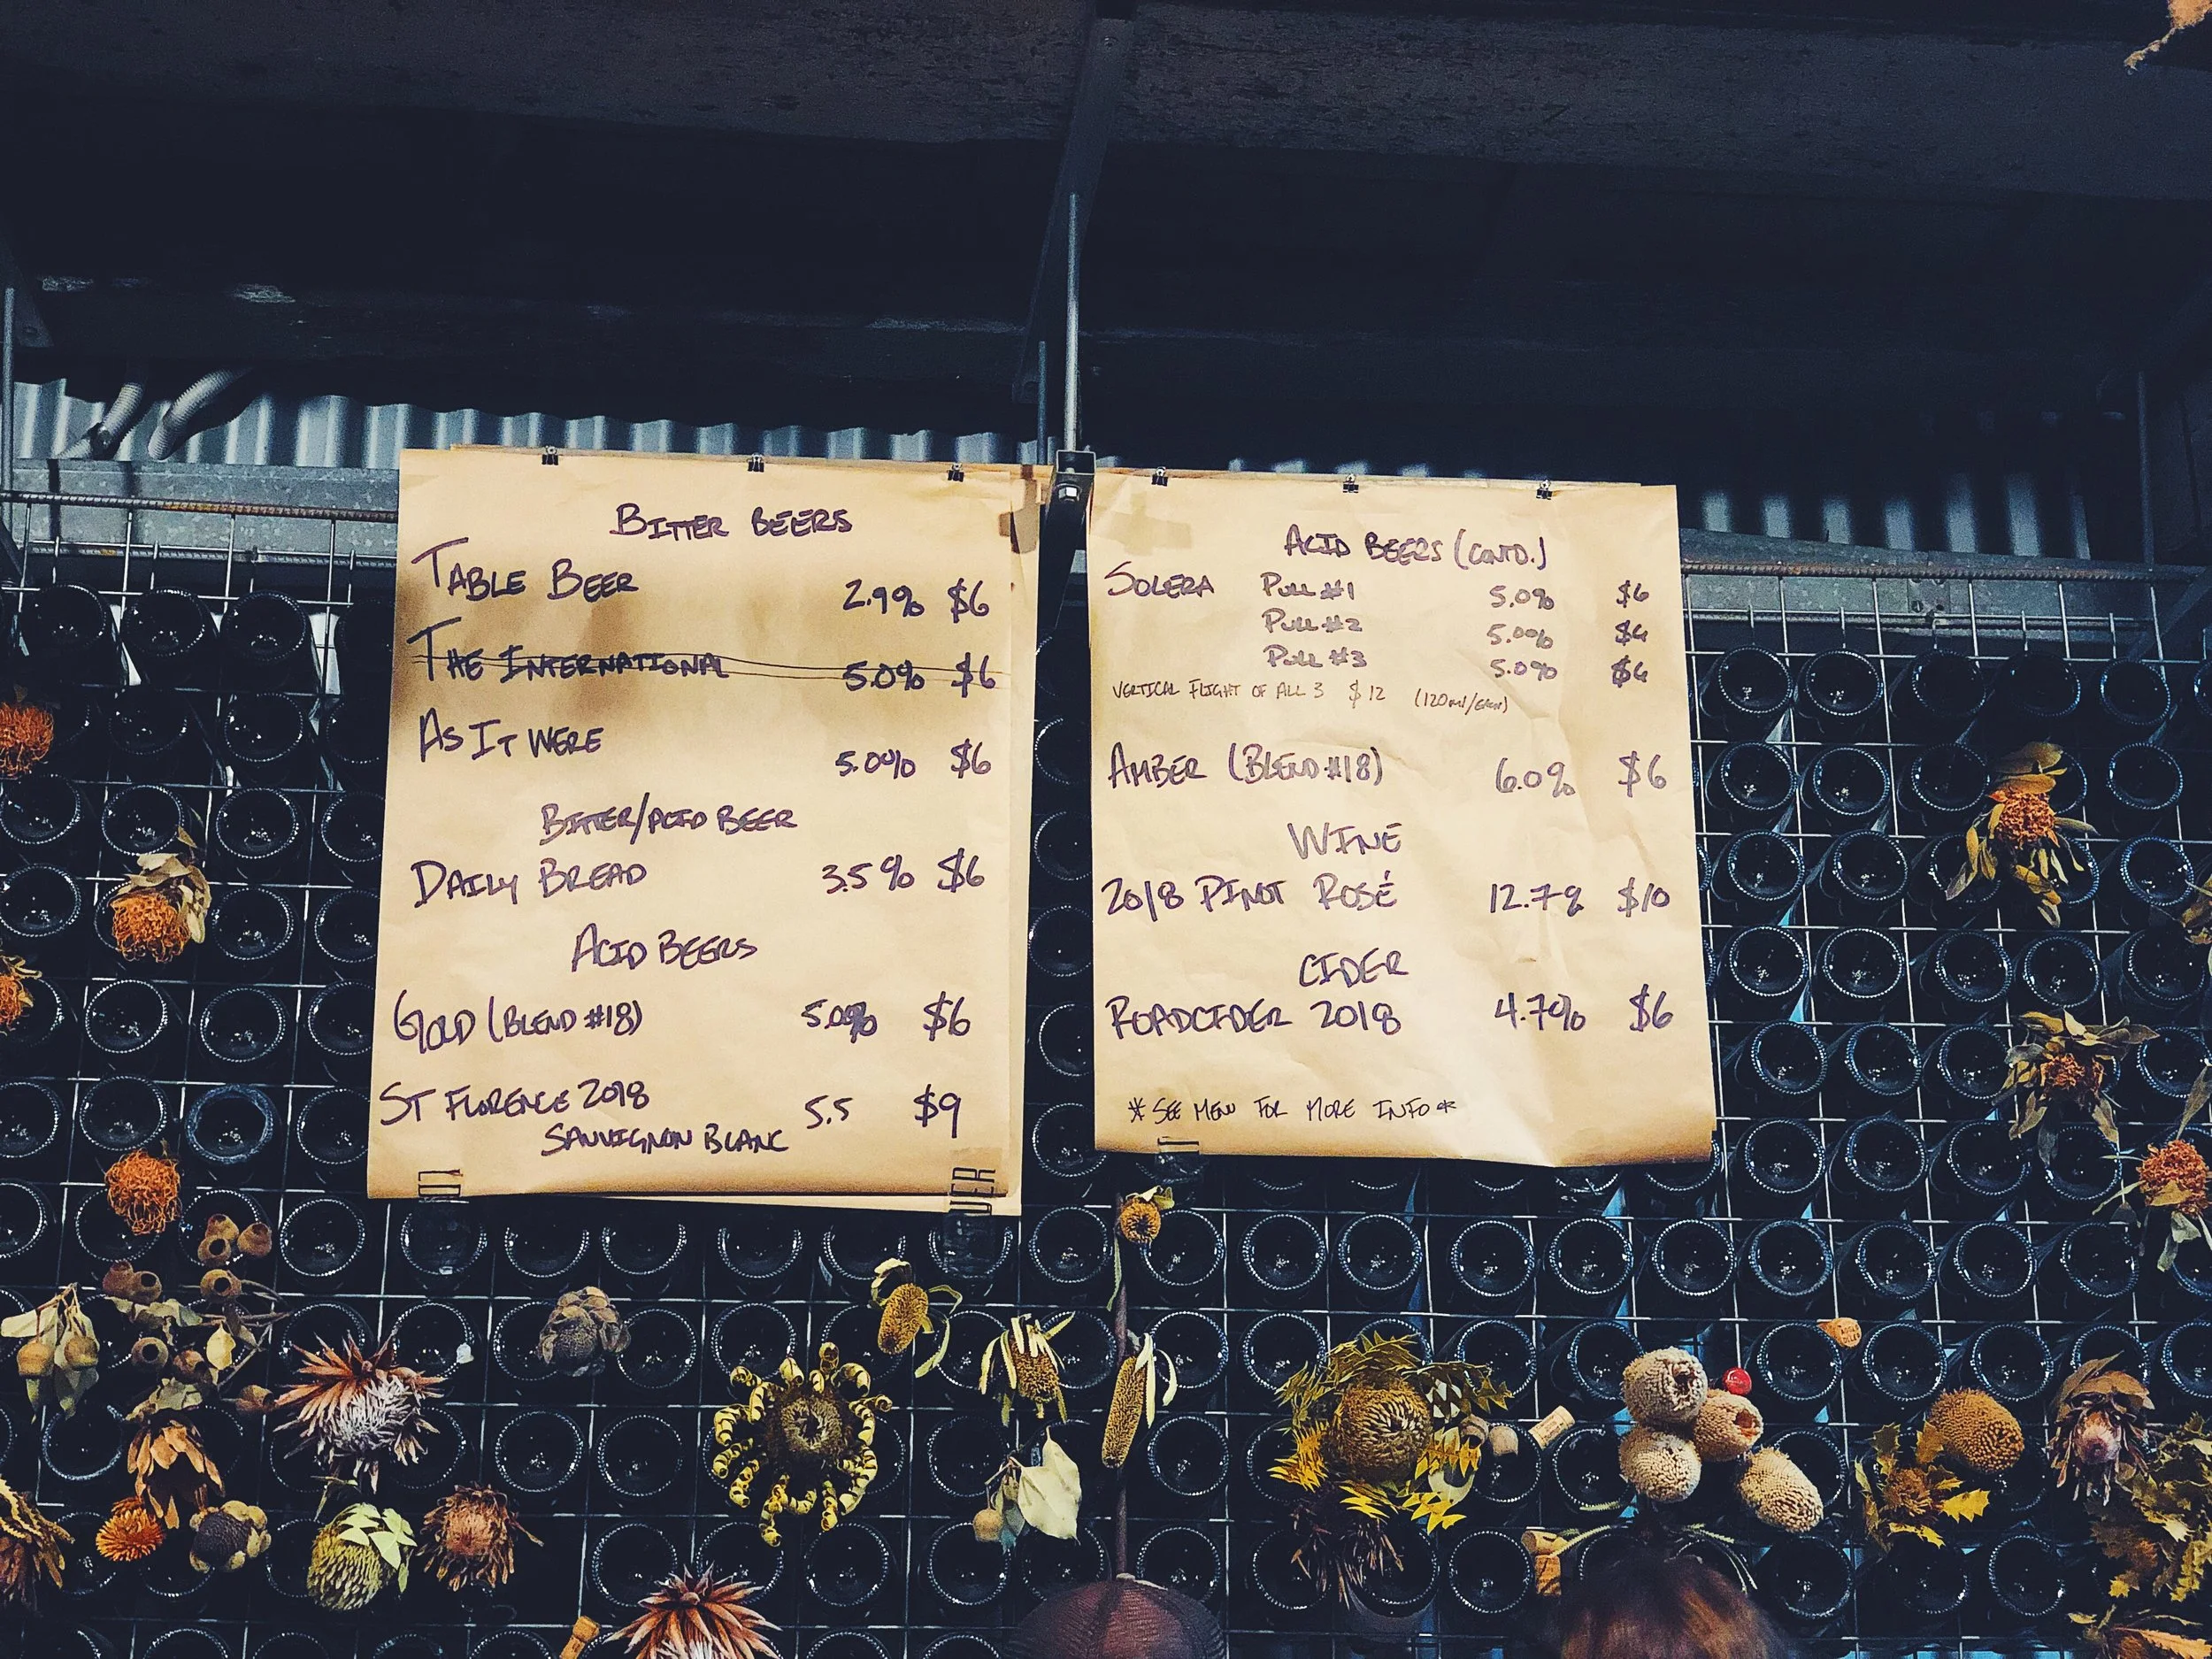 BITTER BEERS
TABLE BEER 2.9% $6
THE INTERNATIONAL 5.0% $6
AS IT WERE 5.0% $6
BITTER/ACID BEER
DAILY BREAD 3.5% $6
ACID BEERS
GOLD (BLEND #18) 5.0% $6
ST FLORENCE 2018 5.5 $9
SAUVIGNON BLANC
ACID BEERS (CONTD.)
SOLERA PULL #1 5.0% $6
PULL #2 5.0% $6
PULL #3 5.0% $6
VERTICAL FLIGHT OF ALL 3 $12 (120ml/EACH)
AMBER (BLEND #18) 6.0% $6
WINE
2018 PINOT ROSÉ 12.7% $10
CIDER
ROADCIDER 2018 4.7% $6
* SEE MENU FOR MORE INFO *